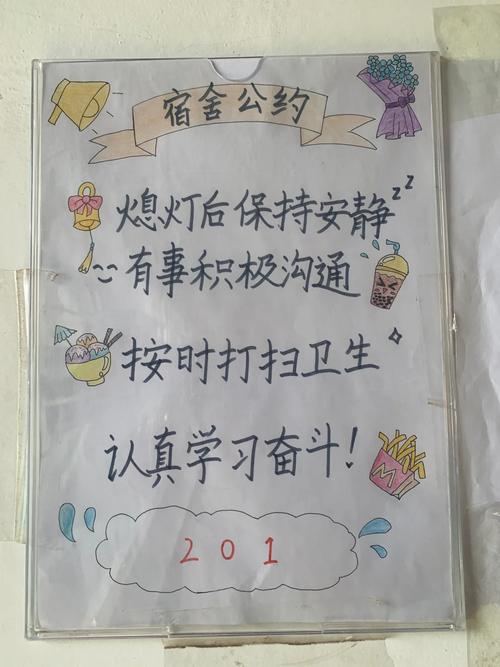 宿舍公约
熄灯后保持安静zz
有事积极沟通
按时打扫卫生
认真学习奋斗!
M
201